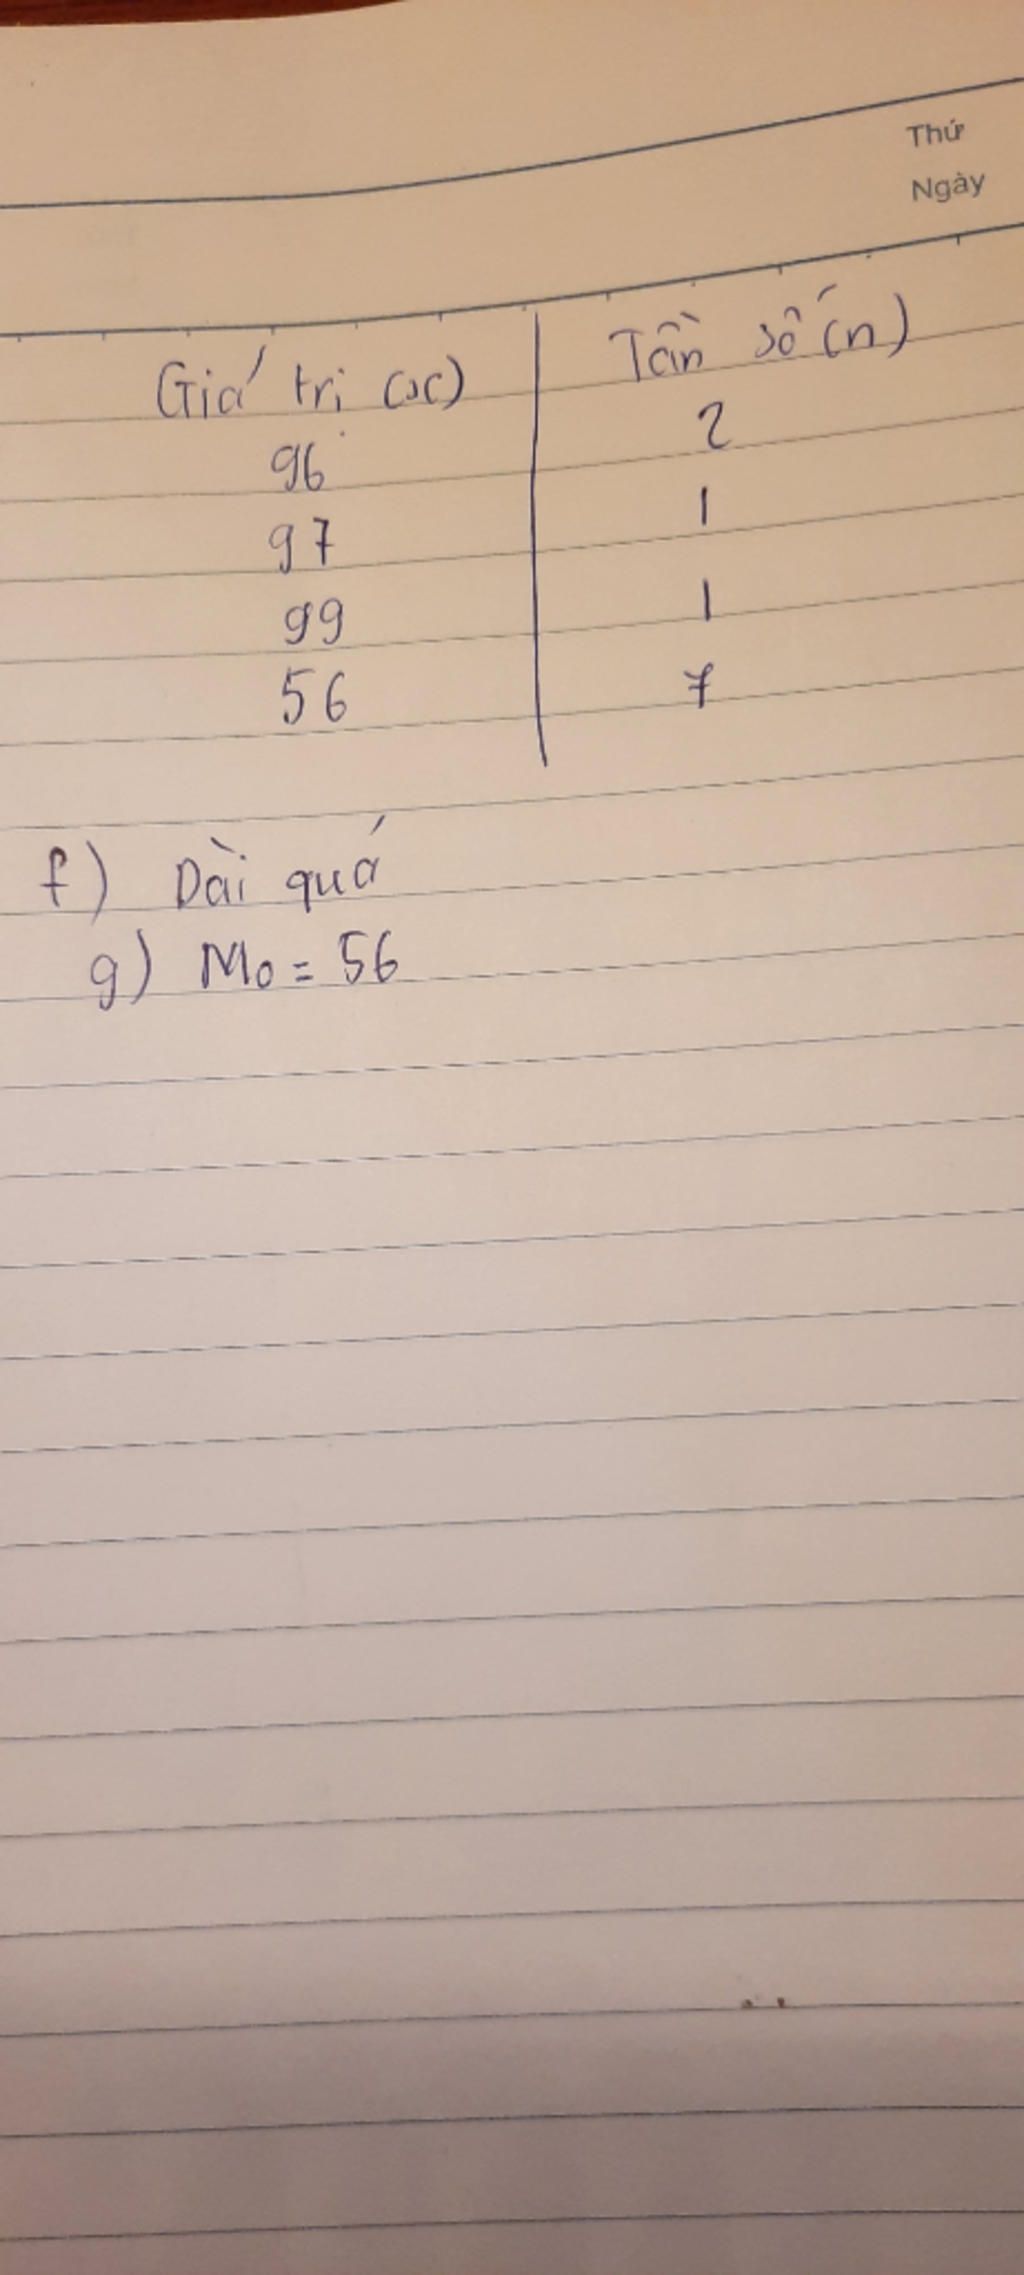 Thứ
Ngày
Giá trị (x) Tần số (n)
96 2
97 1
99 1
56 7
f) Dài quá
g) Mo = 56